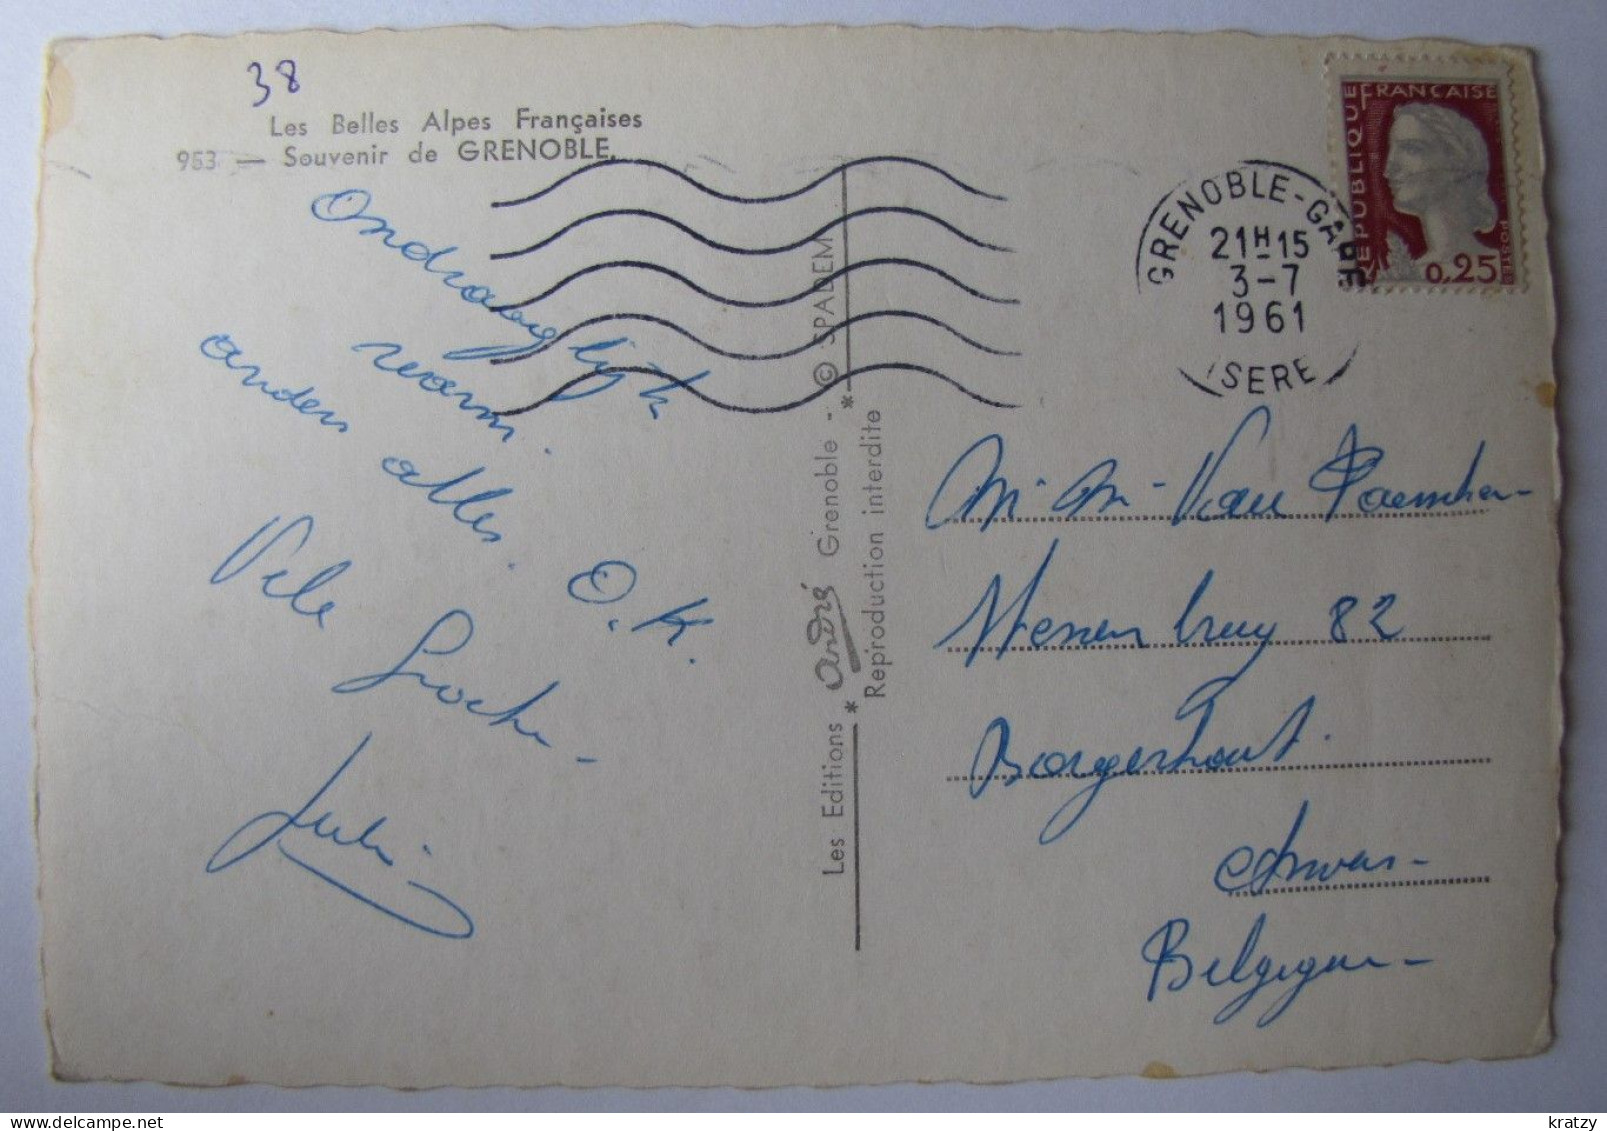 38
Les Belles Alpes Françaises
953 — Souvenir de GRENOBLE.
Ondraaglijk
warm.
anders alles O.K.
Vele Groeten
Les Editions * André Grenoble - * © SPADEM
Reproduction interdite
GRENOBLE-GARE
21H15
3-7
1961
ISERE
REPUBLIQUE FRANCAISE
POSTES
0,25
M. M. Van
82
Borgerhout.
Anvers
Belgique
kratzy